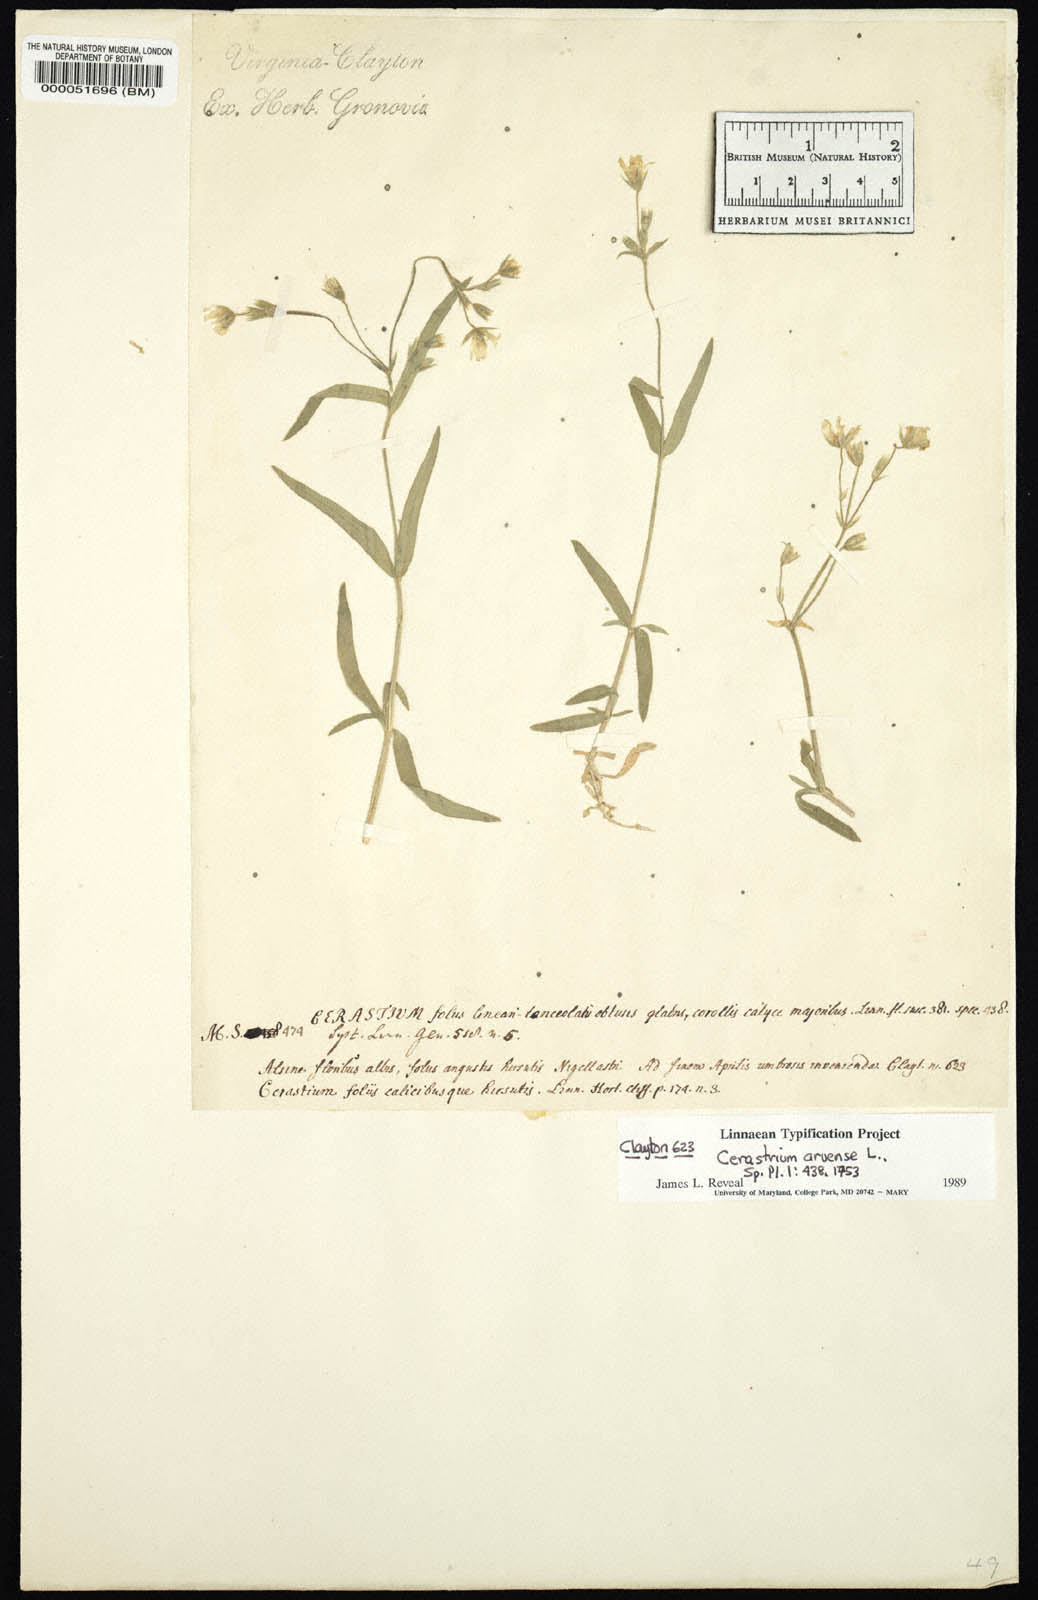 THE NATURAL HISTORY MUSEUM, LONDON
DEPARTMENT OF BOTANY
000051696 (BM)
Virginia-Clayton
Ex. Herb. Gronovii
1 2
BRITISH MUSEUM (NATURAL HISTORY)
1 2 3 4 5
HERBARIUM MUSEI BRITANNICI
CERASTIUM foliis lineari-lanceolatis obtusis glabris, corollis calyce majoribus. Linn. fl. suec. 381. spec. 438.
M.S. 474 Syst. Linn. Gen. 518. n. 5.
Alsine floribus albis, foliis angustis hirsutis Nigellastri. Ad finem Aprilis umbrosis invenienda. Clayt. n. 623
Cerastium foliis calicibusque hirsutis. Linn. Hort. cliff. p. 174. n. 3.
Linnaean Typification Project
Clayton 623 Cerastrium arvense L.,
Sp. Pl. 1: 438. 1753
James L. Reveal 1989
University of Maryland, College Park, MD 20742 – MARY
49